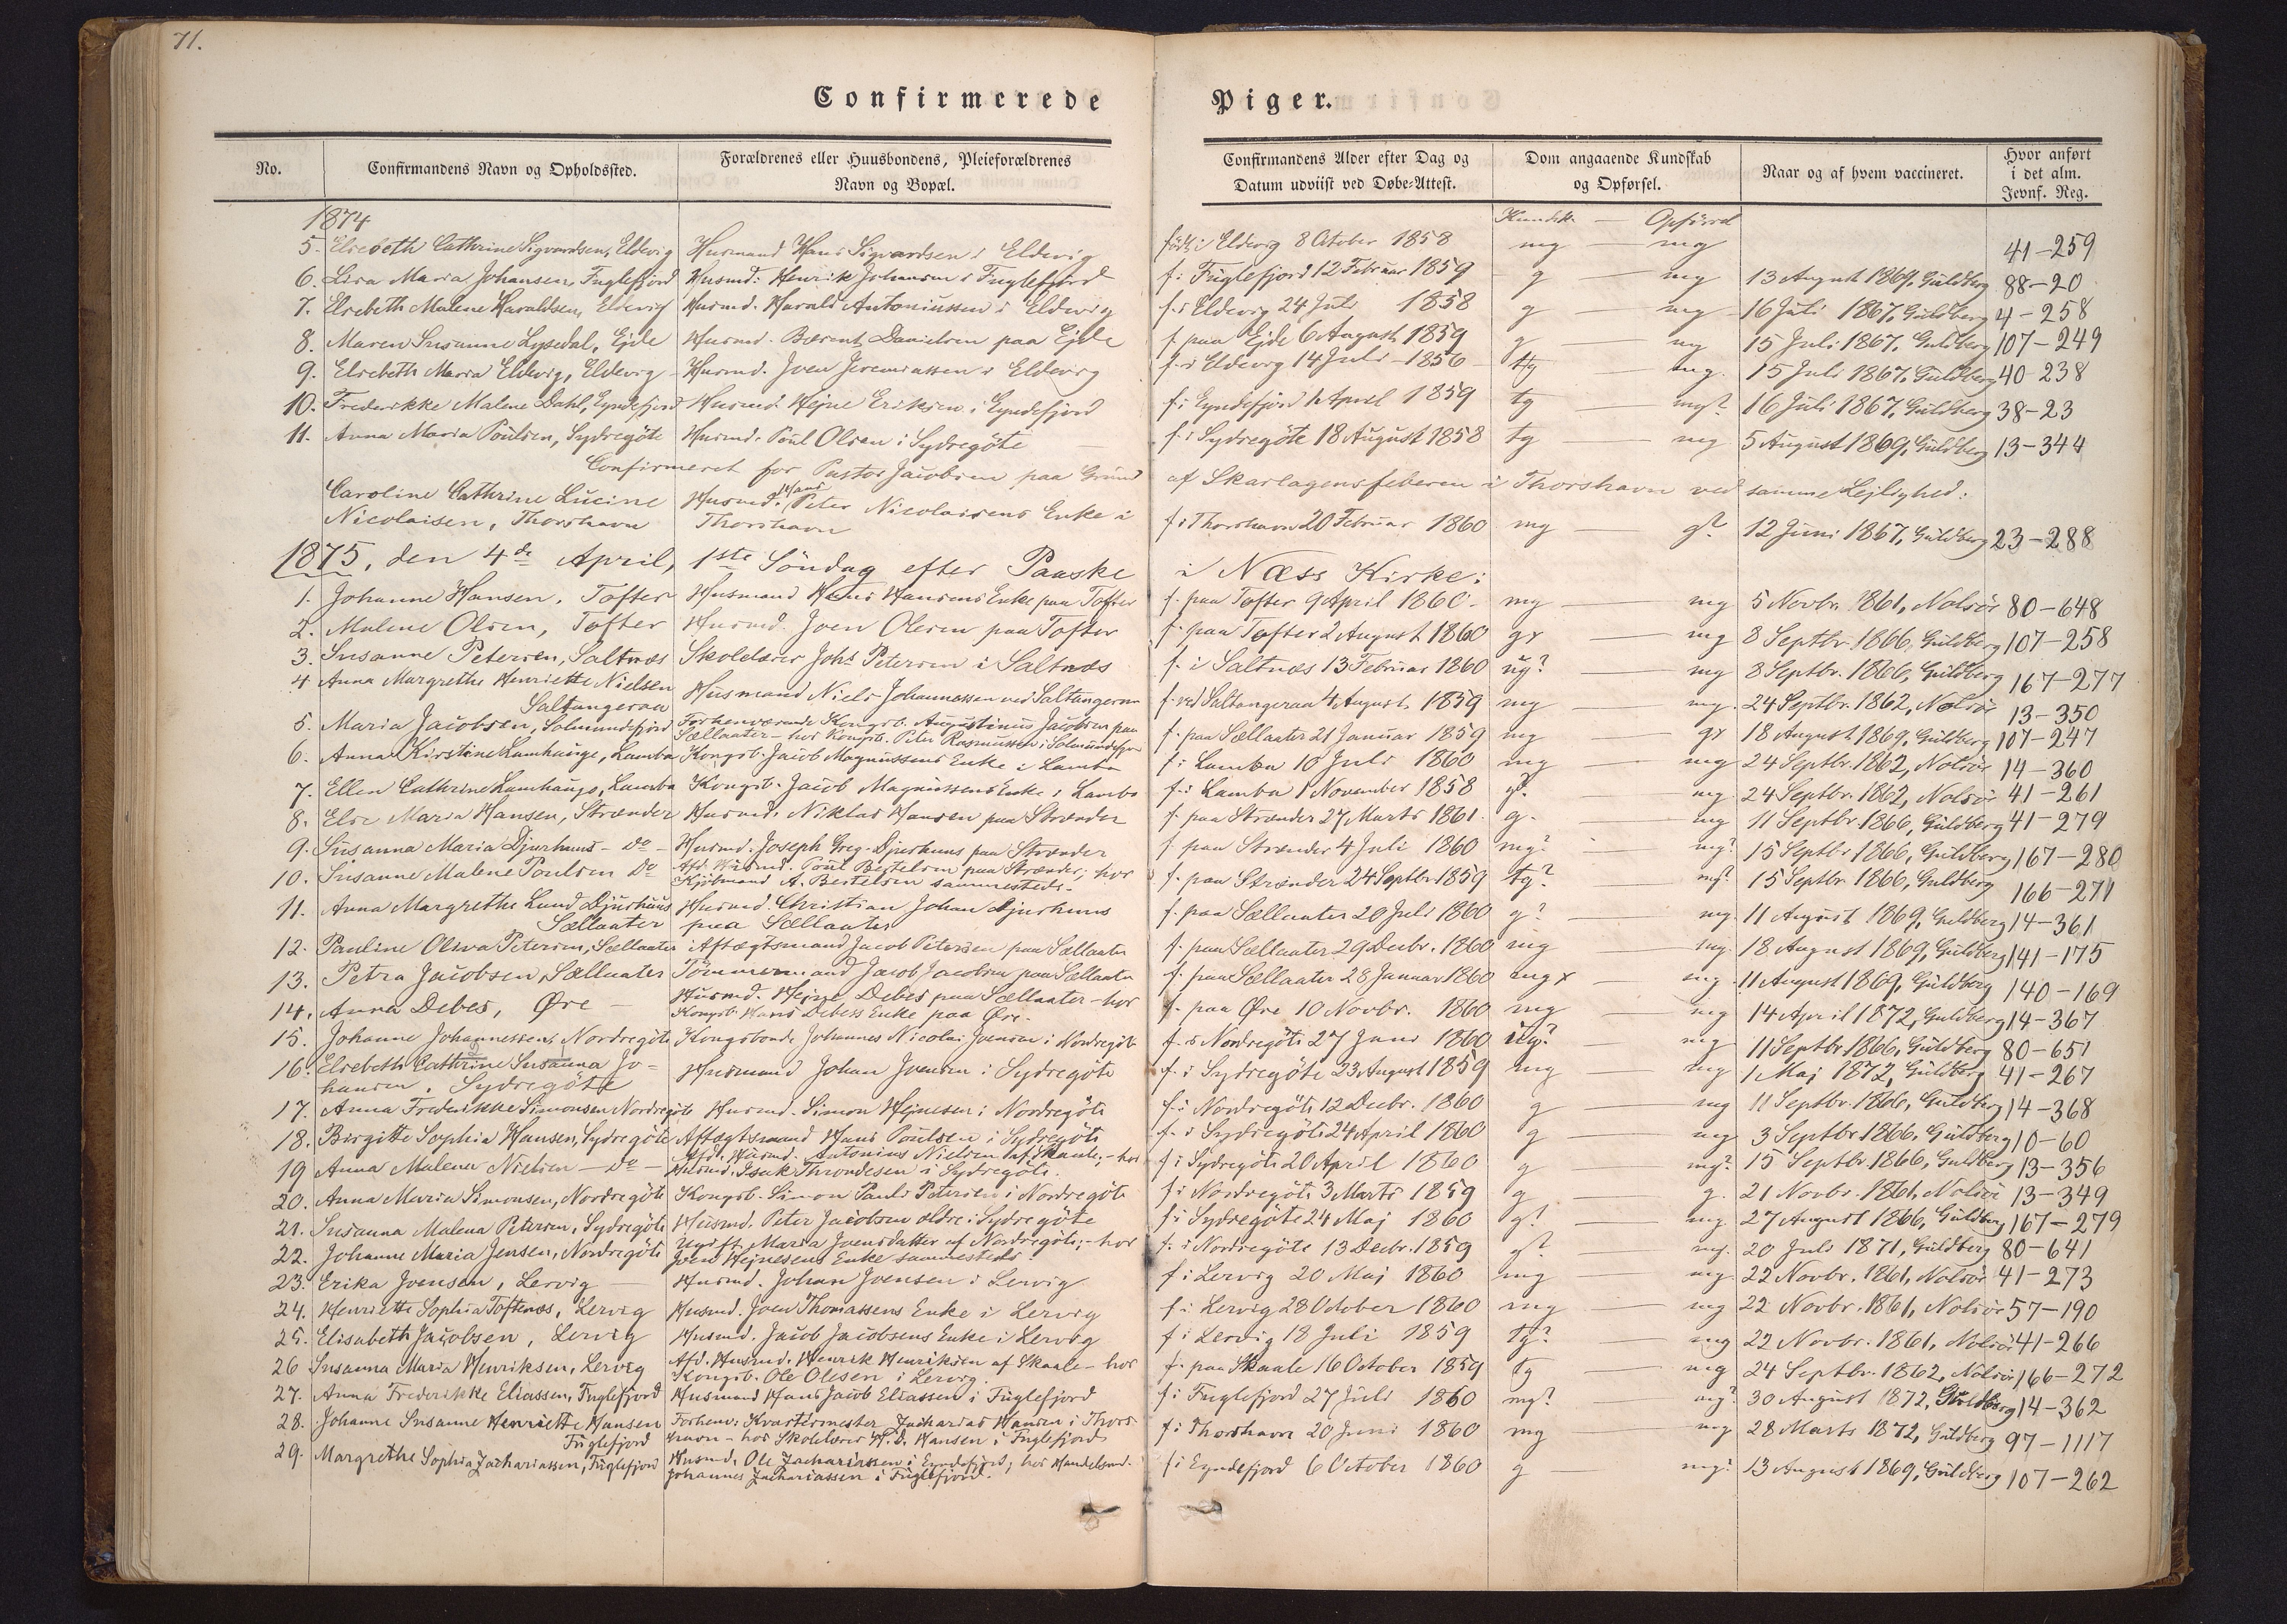 71.
Confirmerede Piger.
No. Confirmandens Navn og Opholdssted. Forældrenes eller Huusbondens, Pleieforældrenes Navn og Bopæl. Confirmandens Alder efter Dag og Datum udviist ved Døbe-Attest. Dom angaaende Kundskab og Opførsel. Naar og af hvem vaccineret. Hvor anført i det alm. Jevnf. Reg.
1874 Kundsk. — Opførsel
5. Elsebeth Cathrine Sigvardsen, Eldevig Husmand Hans Sigvardsen i Eldevig født i Eldevig 8 October 1858 mg — mg 41-259
6. Lisa Maria Johansen, Fuglefjord Husmd: Henrik Johansen i Fuglefjord f. i Fuglefjord 12 Februar 1859 g mg 13 August 1869, Guldberg 88-20
7. Elsebeth Malene Haraldsen, Eldevig Husmd. Harald Antoniussen i Eldevig f. i Eldevig 24 Juli 1858 g — mg 16 Juli 1867, Guldberg 4-258
8. Maren Susanne Lysedal, Ejde Husmd. Bærent Danielsen paa Ejde f. paa Ejde 6 August 1859 g — mg 15 Juli 1867, Guldberg 107-249
9. Elsebeth Maria Eldevig, Eldevig Husmd. Joen Jeremiassen i Eldevig f. i Eldevig 14 Juli 1856 tg — mg. 15 Juli 1867, Guldberg 40-238
10. Frederikke Malene Dahl, Eyndefjord Husmd. Hejne Eriksen i Eyndefjord f. i Eyndefjord 1 April 1859 tg — mg? 16 Juli 1867, Guldberg 38-23
11. Anna Maria Poulsen, Sydregöte Husmd. Poul Olsen i Sydregöte f. i Sydregöte 18 August 1858 tg — mg 5 August 1869, Guldberg 13-344
Confirmeret for Pastor Jacobsen paa Grund af Skarlagensfeberen i Thorshavn ved samme Lejlighed:
Caroline Cathrine Lucine Nicolaisen, Thorshavn Husmd. Hans Peter Nicolaisens Enke i Thorshavn f. i Thorshavn 20 Februar 1860 mg — g? 12 Juni 1867, Guldberg 23-288
1875, den 4de April, 1ste Söndag efter Paaske i Næss Kirke:
1. Johanne Hansen, Tofter Husmand Hans Hansens Enke paa Tofter f. paa Tofter 9 April 1860 mg — mg 5 Novbr. 1861, Nolsöe 80-648
2. Malene Olsen, Tofter Husmd. Joen Olesen paa Tofter f. paa Tofter 2 August 1860 gx — mg 8 Septbr. 1866, Guldberg 107-258
3. Susanne Petersen, Saltnæs Skolelærer Johs Petersen i Saltnæs f. i Saltnæs 13 Februar 1860 ug? — mg 8 Septbr. 1866, Guldberg 167-277
4 Anna Margrethe Henriette Nielsen Saltangeraa Husmand Niels Johannessen ved Saltangeraa f. ved Saltangeraa 4 August 1859 mg — mg. 24 Septbr. 1862, Nolsöe 13-350
5. Maria Jacobsen, Solmundefjord Forhenværende Kongsb. Augustinus Jacobsen paa Sællaater - hos Kongsb. Peter Rasmussen i Solmundefjord f. paa Sællaater 21 Januar 1859 mg — gx 18 August 1869, Guldberg 107-247
6. Anna Kirstine Lamhauge, Lamba Kongsb. Jacob Magnussens Enke i Lamba f. i Lamba 10 Juli 1860 mg — mg 24 Septbr. 1862, Nolsöe 14-360
7. Ellen Cathrine Lamhauge, Lamba Kongsb. Jacob Magnussens Enke i Lamba f. i Lamba 1 November 1858 g? — mg. 24 Septbr. 1862, Nolsöe 41-261
8. Else Maria Hansen, Strænder Husmd. Niklas Hansen paa Strænder f. paa Strænder 27 Marts 1861 g. — mg 11 Septbr. 1866, Guldberg 41-279
9. Susanna Maria Djurhuus - do - Husmd. Joseph Greg. Djurhuus paa Strænder f. paa Strænder 4 Juli 1860 mg? — mg? 15 Septbr 1866, Guldberg 167-280
10. Susanne Malene Poulsen Do Afd. Husmd. Poul Bertelsen paa Strænder, hos Kjöbmand A. Bertelsen sammesteds. f. paa Strænder 24 Septbr 1859 tg? — mg? 15 Septbr 1866, Guldberg 166-271
11. Anna Margrethe Lund Djurhuus Sællaater Husmd. Christian Johan Djurhuus paa Sællaater f. paa Sællaater 20 Juli 1860 g? — mg. 11 August 1869, Guldberg 14-361
12. Pauline Oliva Petersen, Sællaater Aftægtsmand Jacob Petersen paa Sællaater f. paa Sællaater 29 Decbr. 1860 mg — mg. 18 August 1869, Guldberg 141-175
13. Petra Jacobsen, Sællaater Tömmermand Jacob Jacobsen paa Sællaater f. paa Sællaater 28 Januar 1860 mgx — mg 11 August 1869, Guldberg 140-169
14. Anna Debes, Øre — Husmd. Hejne Debes paa Sællaater - hos Kongsb. Hans Debess Enke paa Øre. f. paa Øre 10 Novbr. 1860 mg — mg 14 April 1872, Guldberg 14-367
15. Johanne Johannessen, Nordregöte Kongsbonde Johannes Nicolai Joensen i Nordregöte f. i Nordregöte 27 Juni 1860 ug? — mg 11 Septbr 1866, Guldberg 80-651
16. Elsebeth Cathrine Susanna Johansen, Sydregöte Husmand Johan Joensen i Sydregöte f. i Sydregöte 23 August 1859 mg — mg 1 Maj 1872, Guldberg 41-267
17. Anna Frederikke Simonsen Nordregöte Husmd. Simon Hejnesen i Nordregöte f. i Nordregöte 12 Decbr. 1860 g — mg 11 Septbr. 1866, Guldberg 14-368
18. Birgitte Sophia Hansen, Sydregöte Aftægtsmand Hans Poulsen i Sydregöte f. i Sydregöte 24 April 1860 g — mg 3 Septbr 1866, Guldberg 10-60
19 Anna Malena Nielsen — Do — Afd. Husmd. Antonius Nielsen af Skaale, - hos Husmd. Isak Throndesen i Sydregöte. f. i Sydregöte 20 April 1860 g — mg? 15 Septbr 1866, Guldberg 13-356
20. Anna Maria Simonsen, Nordregöte Kongsb. Simon Pauli Petersen i Nordregöte f. i Nordregöte 3 Marts 1859 g — g. 21 Novbr. 1861, Nolsöe 13-349
21. Susanna Malena Petersen, Sydregöte Husmd. Peter Jacobsen ældre i Sydregöte f. i Sydregöte 24 Maj 1860 g? — mg 27 August 1866, Guldberg 167-279
22. Johanne Maria Jensen, Nordregöte Ugift Maria Joensdatter af Nordregöte, - hos Joen Hejnesens Enke sammesteds. f. i Nordregöte 13 Decbr. 1859 g? mg. 20 Juli 1871, Guldberg 80-641
23. Erika Joensen, Lervig — Husmd. Johan Joensen i Lervig f. i Lervig 20 Maj 1860 mg — mg 22 Novbr. 1861, Nolsöe 41-273
24. Henriette Sophia Toftenæs, Lervig Husmd. Joen Thomassens Enke i Lervig f. i Lervig 28 October 1860 mg — mg 22 Novbr. 1861, Nolsöe 57-190
25. Elisabeth Jacobsen, Lervig Husmd. Jacob Jacobsens Enke i Lervig f. i Lervig 18 Juli 1859 tg? — mg 22 Novbr. 1861, Nolsöe 41-266
26 Susanna Maria Henriksen, Lervig Afd. Husmd. Henrik Henriksen af Skaale - hos Kongsb. Ole Olesen i Lervig. f. paa Skaale 16 October 1859 tg — mg 24 Septbr. 1862, Nolsöe 166-272
27. Anna Frederikke Eliassen, Fuglefjord Husmand Hans Jacob Eliassen i Fuglefjord f. i Fuglefjord 27 Juli 1860 mg? — mg? 30 August 1872, Guldberg 14-362
28. Johanne Susanne Henriette Hansen Fuglefjord Forhenv: Kvartermester Zacharias Hansen i Thorshavn - hos Skolelærer H. d. Hansen i Fuglefjord f. i Thorshavn 20 Juni 1860 mg — mg 28 Marts 1872, Guldberg 97-1117
29. Margrethe Sophia Zachariassen, Fuglefjord Husmd. Ole Zachariassen i Eyndefjord; hos Handelsmd. Johannes Zachariassen i Fuglefjord. f. i Eyndefjord 6 October 1860 g — mg? 13 August 1869, Guldberg 107-262